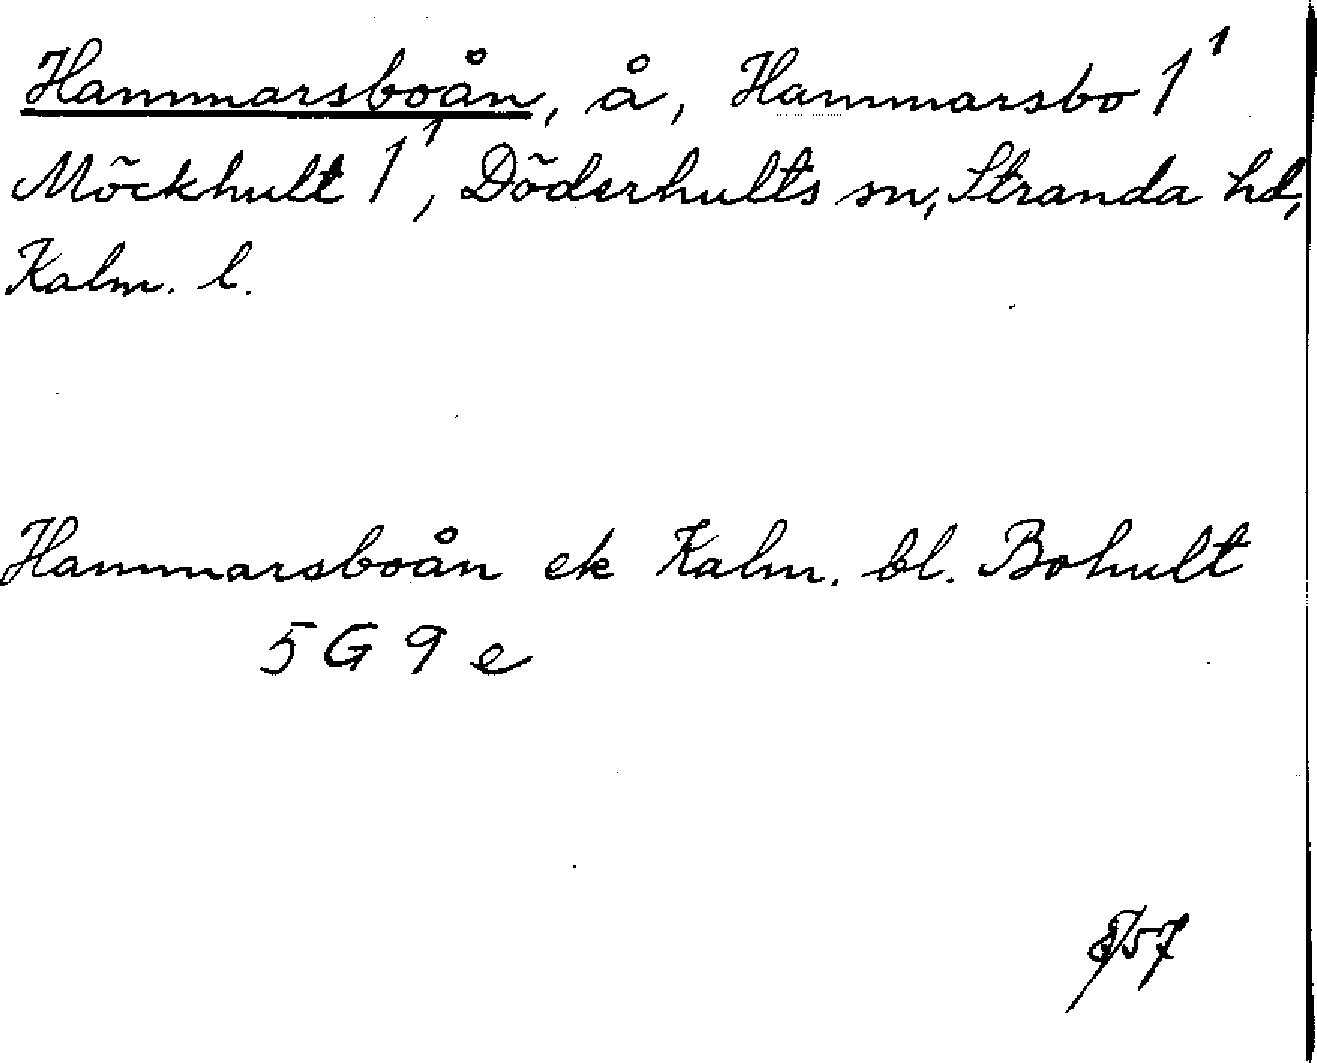 Hammarsboån, å, Hammarsbo 1¹
Möckhult 1¹, Döderhults sn, Stranda hd,
Kalm. l.
Hammarsboån ek Kalm. bl. Bohult
5 G 9 e